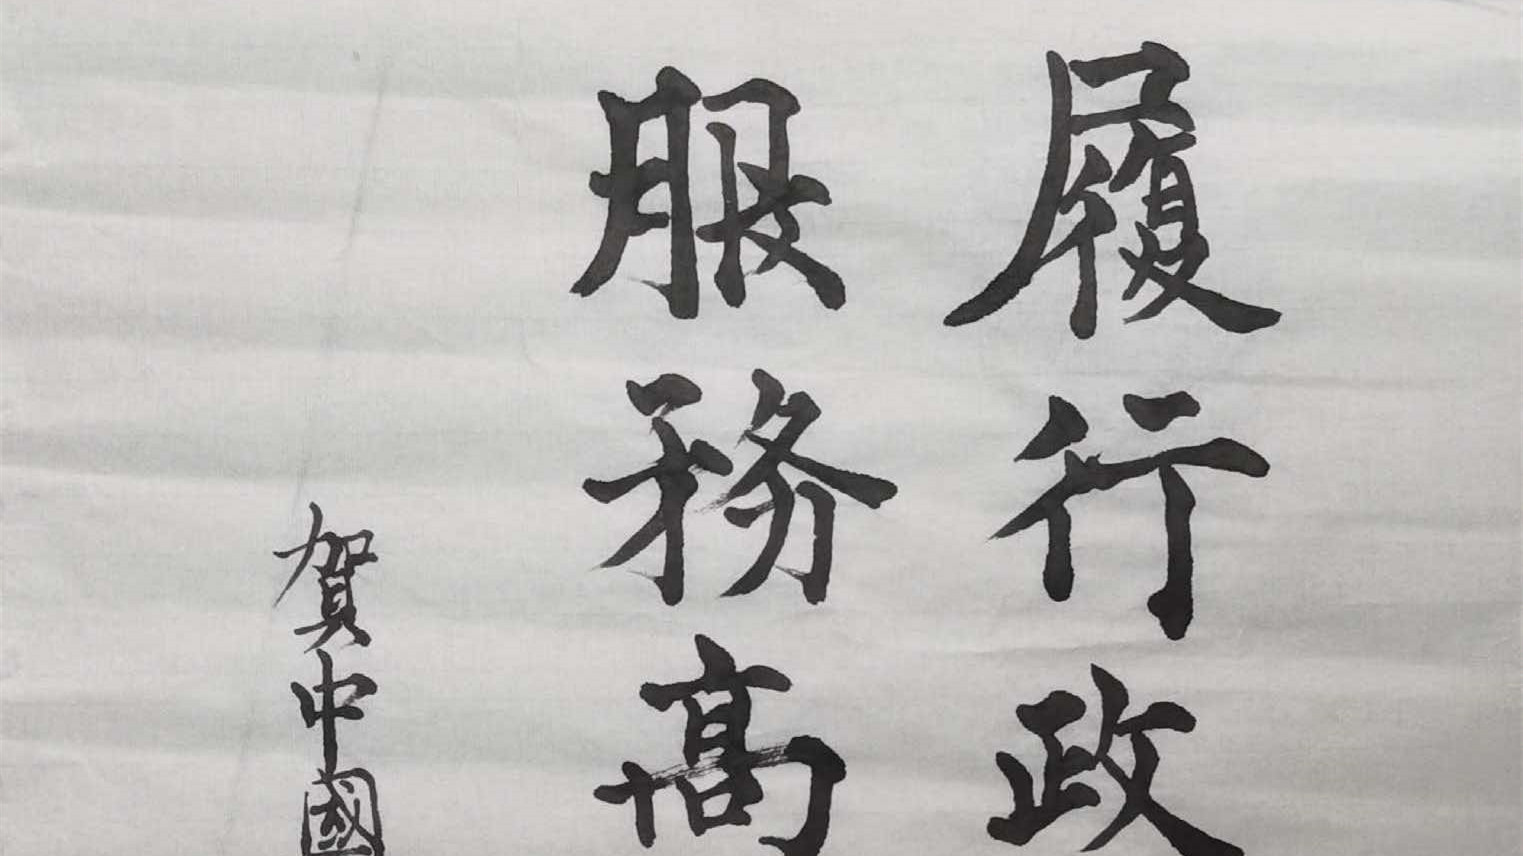 履行政
服務高
賀中國